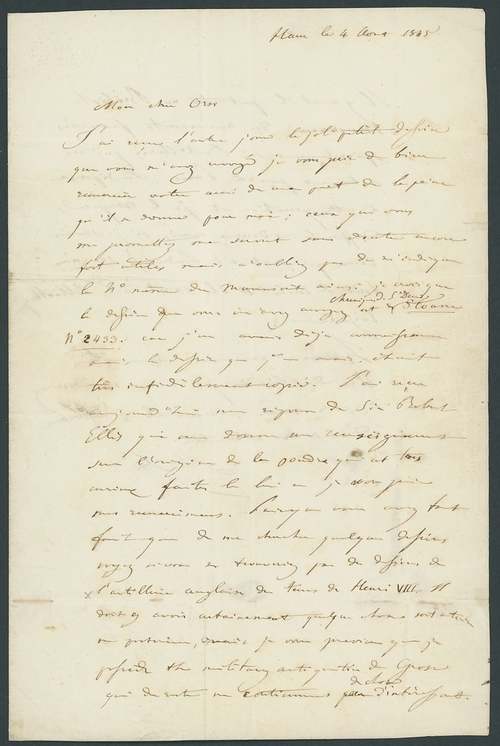 Ham le 4 Août 1845
Mon cher Orsi
J'ai reçu l'autre jour le joli petit dessin
que vous m'avez envoyé je vous prie de bien
remercier votre ami de ma part de la peine
qu'il se donne pour moi; ceux que vous
me promettez me seront sans doute encore
fort utiles mais n'oubliez pas de m'indiquer
le No même du Manuscrit ainsi je crois que
le dessin que vous m'avez envoyé est Chronique St Denis Sloane
No 2433. car j'en avais déjà connaissance
mais le dessin que j'en avais était
très infidèlement copié. J'ai reçu
aujourd'hui une réponse de Sir Robert
Ellis qui me donne un renseignement
sur l'origine de la poudre qui est très
curieux faites le lui en je vous prie
mes remerciements. Puisque vous avez tant
fait que de me chercher quelques dessins
voyez si vous ne trouveriez pas de dessins de
x l'artillerie anglaise du temps de Henri VIII. Il
doit y avoir certainement quelque chose soit à la
je vous préviens que je
possède the military antiquities de Grose
qui du reste ne contiennent peu de chose d'intéressant.